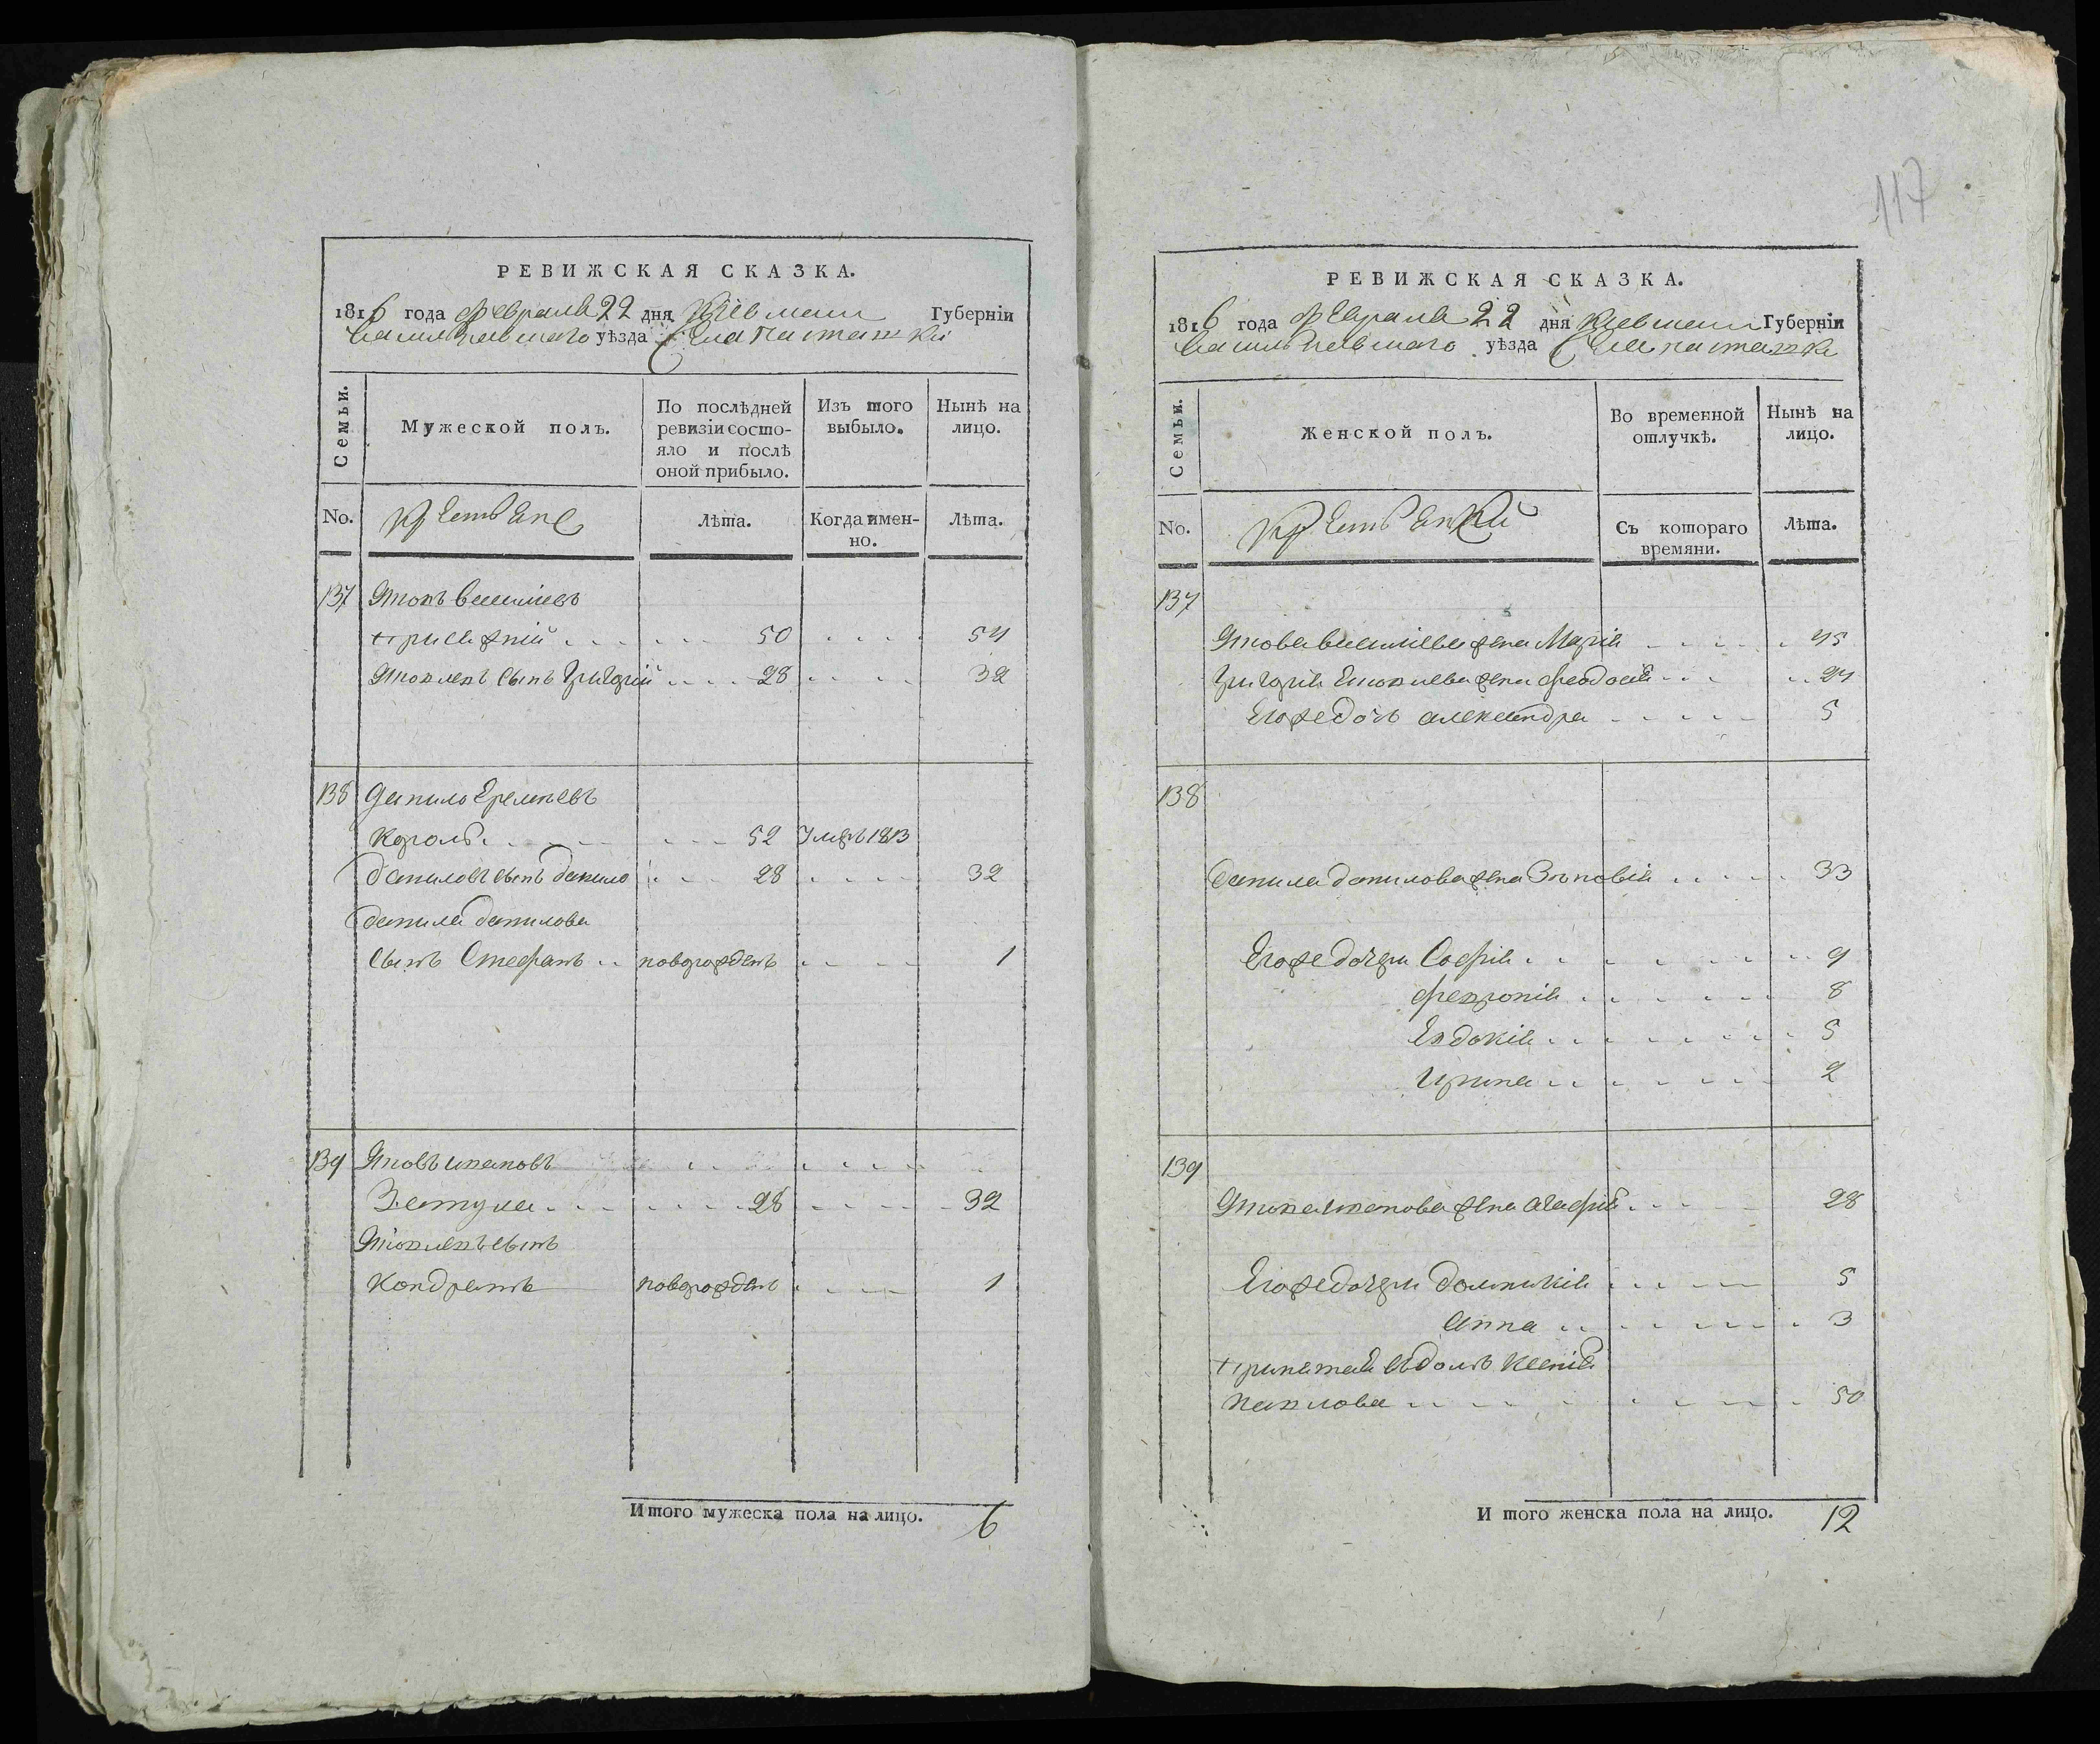 РЕВИЖСКАЯ СКАЗКА.
1816 года февраля 22 дня Киевской Губерніи
Васильковского уѣзда Села Пастажки
Семьи.
Мужеской полъ.
По послѣдней ревизіи состояло и послѣ оной прибыло.
Изъ того выбыло.
Нынѣ на лицо.
No.
Крестьяне
Лѣта.
Когда имен-
но.
Лѣта.
137 Яковъ Василиевъ
50 54
Яковлевъ сынъ Григорий 28 32
138 Данило Еремѣевъ
Король 52 Умеръ 1813
Даниловъ сынъ Данило 28 32
Данила Данилова
сынъ Стефанъ новорожденъ 1
139 Яковъ Ивановъ
28 32
Яковлевъ сынъ
Кондратъ новорожденъ 1
Итого мужеска пола на лицо. 6
117
РЕВИЖСКАЯ СКАЗКА.
1816 года февраля 22 дня Киевской Губерніи
Васильковского уѣзда Села Пастажки
Семьи.
Женской полъ.
Во временной
отлучкѣ.
Нынѣ на
лицо.
No.
Крестьянки
Съ котораго
времяни.
Лѣта.
137
Якова Василіева жена Марія 45
Григорія Яковлева жена Феодосия 24
Его же дочь александра 5
138
Данила Данилова жена Зѣновія 33
Его же дочери Софія 9
Февронія 8
Евдокія 5
Ирина 2
139
Якова Иванова жена агафія 28
Его же дочери Домникія 5
анна 3
принятая въ домъ Ксенія
Павлова 50
И того женска пола на лицо. 12